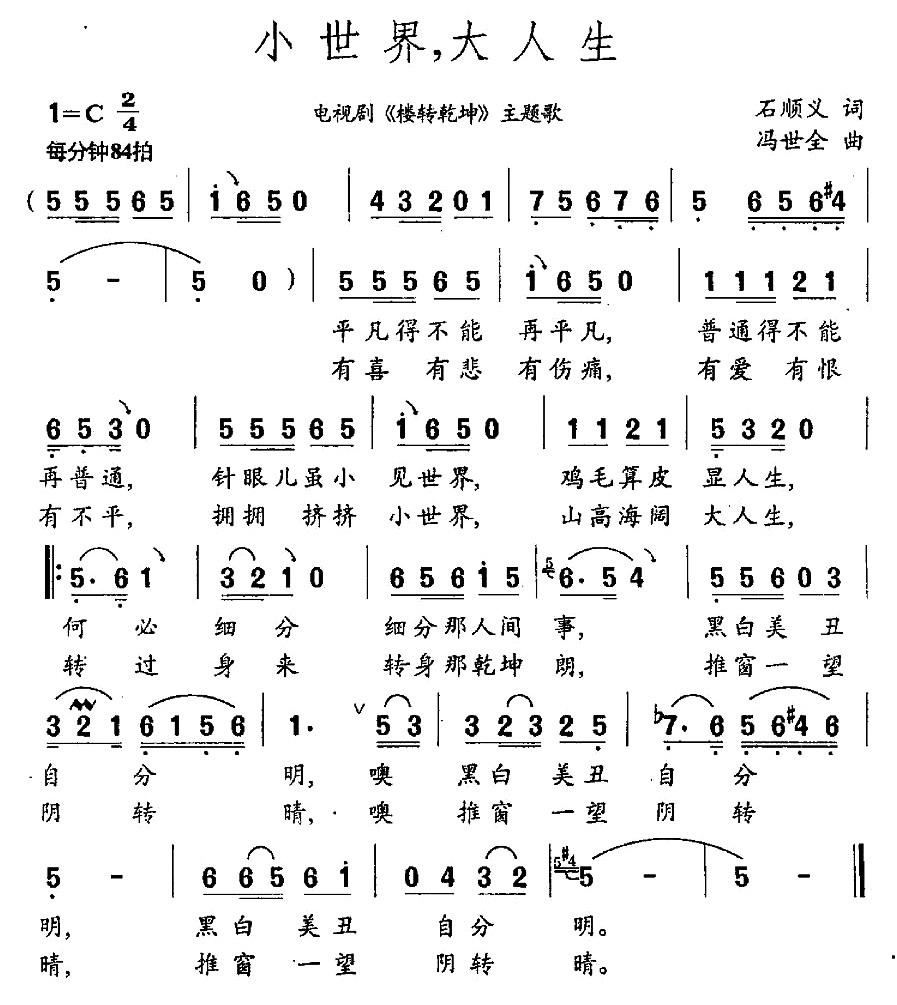 小世界,大人生
1=C 2/4
电视剧《楼转乾坤》主题歌
石顺义 词
每分钟84拍
冯世全 曲
( 5 5 5 6 5 | 1 6 5 0 | 4 3 2 0 1 | 7 5 6 7 6 | 5 6 5 6 #4 |
5 - | 5 0 ) | 5 5 5 6 5 | 1 6 5 0 | 1 1 1 2 1 |
平凡得不能 再平凡, 普通得不能
有喜 有悲 有伤痛, 有爱 有恨
6 5 3 0 | 5 5 5 6 5 | 1 6 5 0 | 1 1 2 1 | 5 3 2 0 |
再普通, 针眼儿虽小 见世界, 鸡毛算皮 显人生,
有不平, 拥拥 挤挤 小世界, 山高海阔 大人生,
‖: 5· 6 1 | 3 2 1 0 | 6 5 6 1 5 | 5 6· 5 4 | 5 5 6 0 3 |
何必 细分 细分那人间 事, 黑白美丑
转过 身来 转身那乾坤 朗, 推窗一望
3 2 1 6 1 5 6 | 1· ∨ 5 3 | 3 2 3 2 5 | ♭7· 6 5 6 #4 6 |
自 分 明, 噢 黑白 美丑 自 分
阴 转 晴, 噢 推窗 一望 阴 转
5 - | 6 6 5 6 1 | 0 4 3 2 | 5 #4 5 - | 5 - ‖
明, 黑白 美丑 自分 明。
晴, 推窗 一望 阴转 晴。